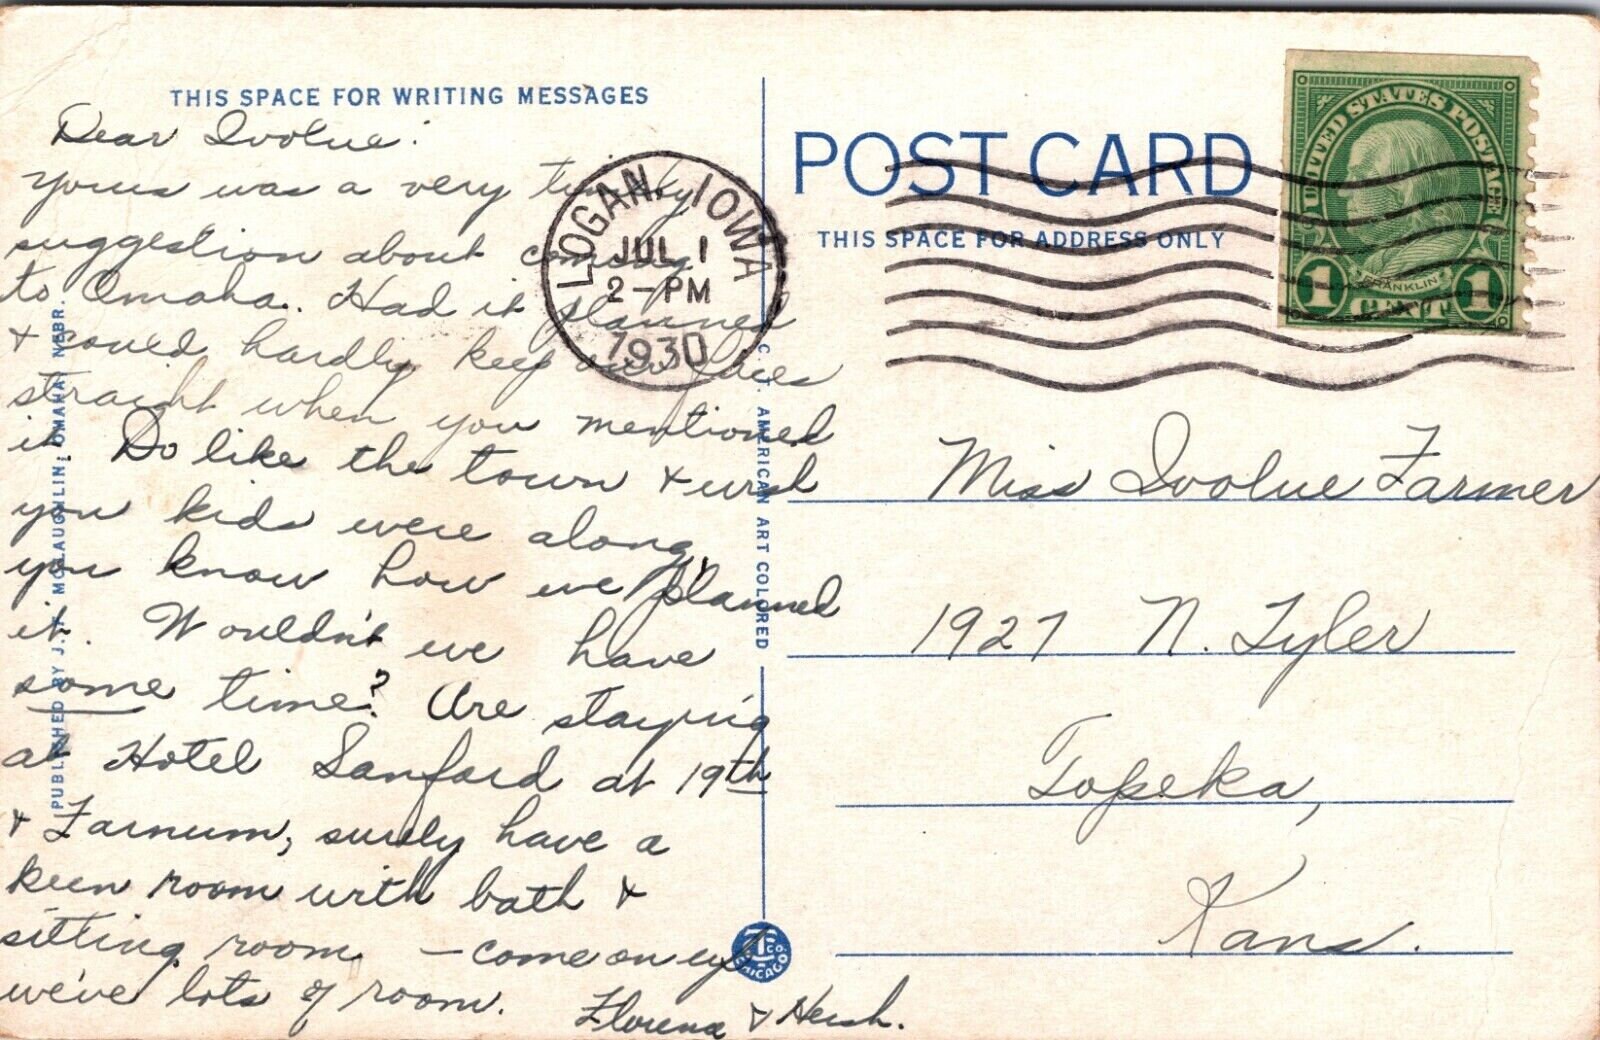 THIS SPACE FOR WRITING MESSAGES
Dear Ivolue:
Yours was a very timely
suggestion about coming
to Omaha. Had it planned
& could hardly keep our faces
straight when you mentioned
it. Do like the town & wish
you kids were along,
you know how we planned
it. Wouldn't we have
some time? Are staying
at Hotel Sanford at 19th
& Farnum, surely have a
keen room with bath &
sitting room — come on up
we've lots of room.
Florena & Hersh.
PUBLISHED BY J. T. MCLAUGHLIN, OMAHA, NEBR.
C. T. AMERICAN ART COLORED
CHICAGO
LOGAN, IOWA
JUL 1
2-PM
1930
POST CARD
THIS SPACE FOR ADDRESS ONLY
UNITED STATES POSTAGE
FRANKLIN
1 CENT 1
Miss Ivolue Farmer
1927 N. Tyler
Topeka,
Kans.